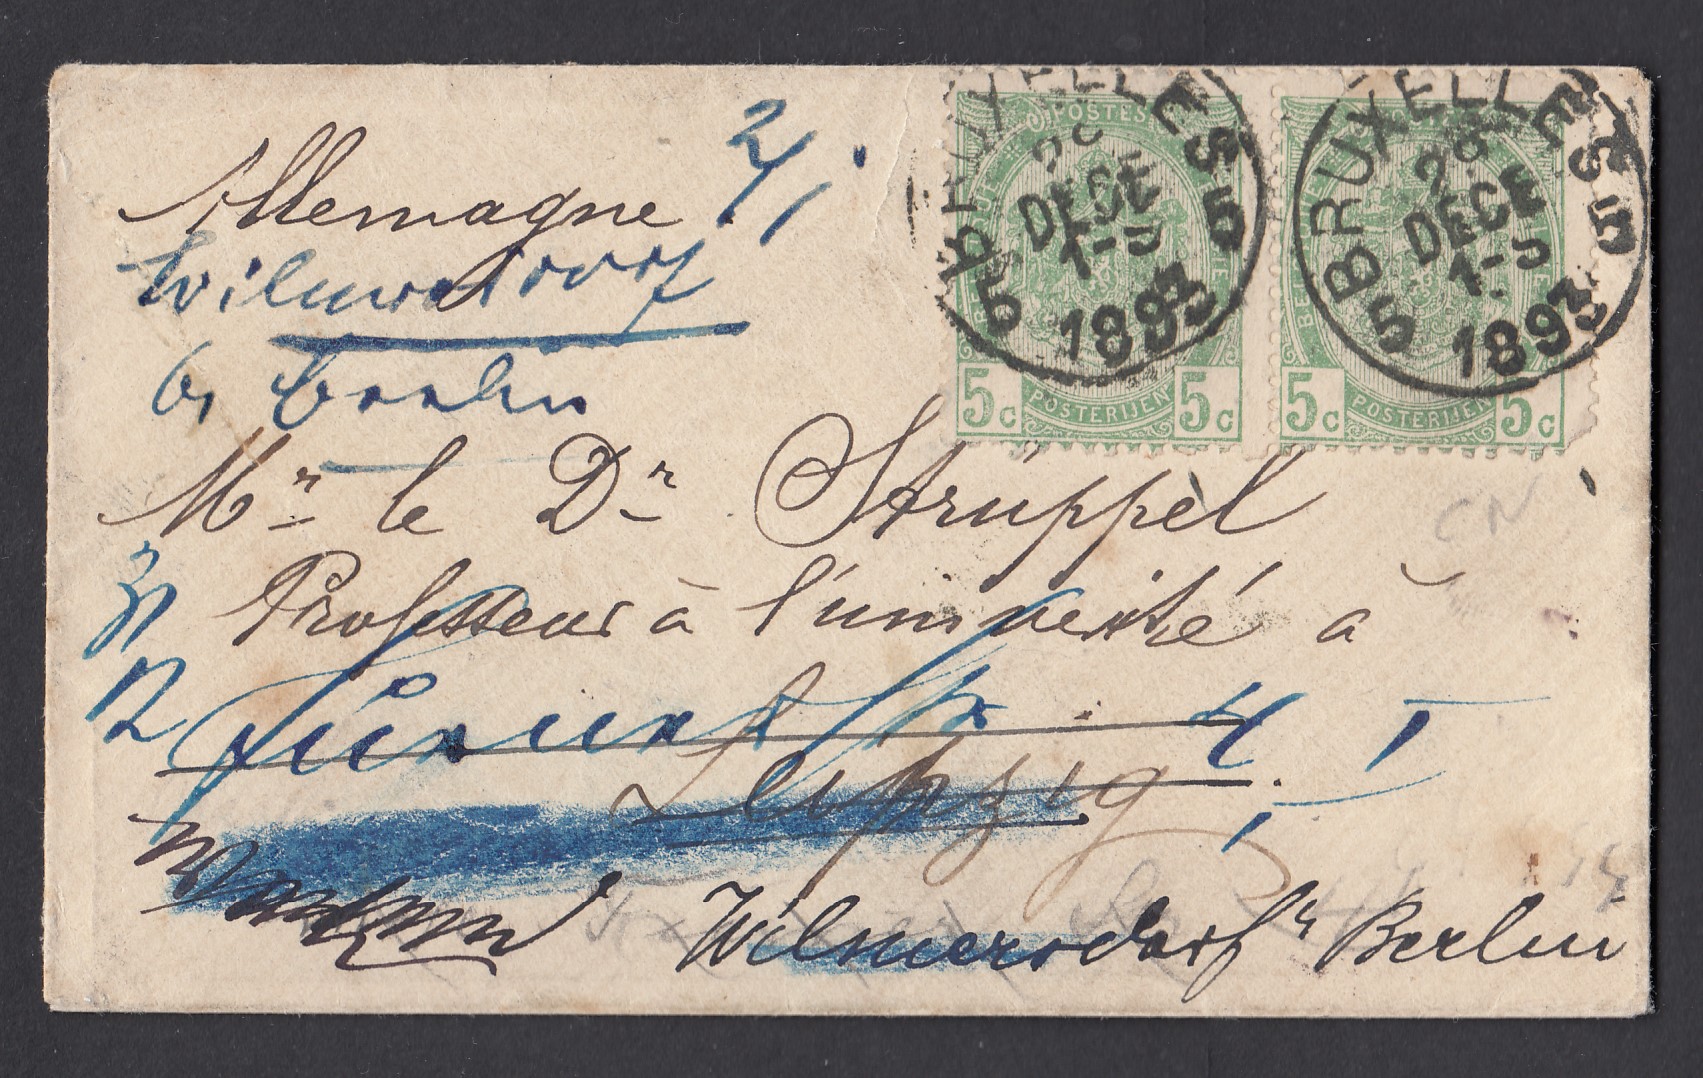 Allemagne 2/1
Wilmersdorf
b/ Berlin
BRUXELLES 5
DECE
1-3
1893
5
POSTES
BELGIQUE
5c POSTERIJEN 5c
BRUXELLES 5
28
DECE
1-3
1893
5
5c POSTERIJEN 5c
CN
Mr le Dr Strüppel
Professeur à l'université à
31
12
4 I
Leipzig
Wilmersdorf b/ Berlin